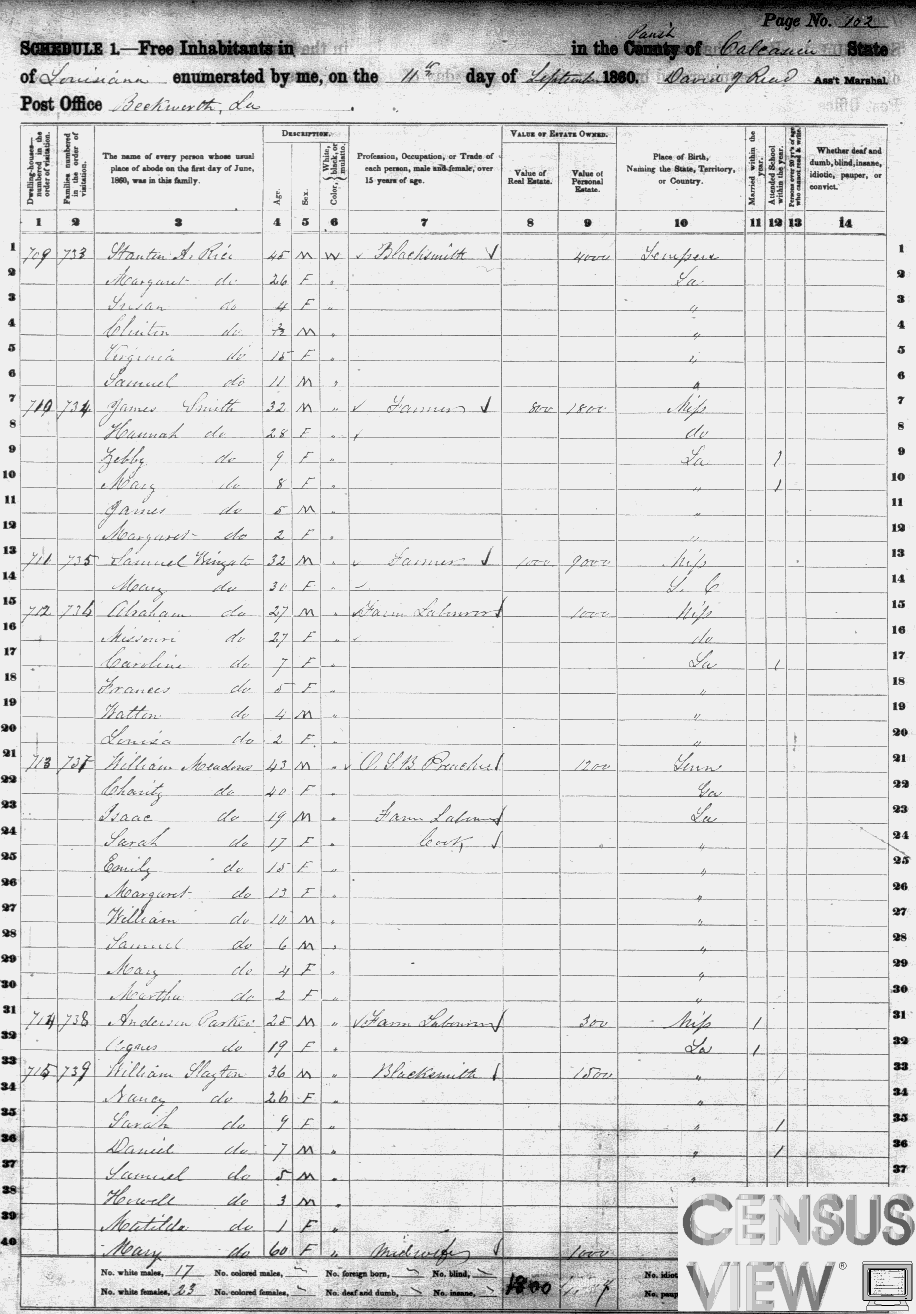 Page No. 102
SCHEDULE 1.—Free Inhabitants in in the County of Parish Calcasieu State
of Louisiana enumerated by me, on the 11th day of September 1860. David J Read Ass't Marshal.
Post Office Beckwerth, La
DESCRIPTION. VALUE OF ESTATE OWNED.
Dwelling-houses—numbered in the order of visitation. Families numbered in the order of visitation. The name of every person whose usual place of abode on the first day of June, 1860, was in this family. Age. Sex. Color, White, black, or mulatto. Profession, Occupation, or Trade of each person, male and female, over 15 years of age. Value of Real Estate. Value of Personal Estate. Place of Birth, Naming the State, Territory, or Country. Married within the year. Attended School within the year. Persons over 20 y'rs of age who cannot read & write. Whether deaf and dumb, blind, insane, idiotic, pauper, or convict.
1 2 3 4 5 6 7 8 9 10 11 12 13 14
1 709 733 Stanton A. Rice 45 M W Blacksmith 4000 1
2 Margaret do 26 F " La 2
3 Susan do 4 F " " 3
4 Clinton do M " " 4
5 Virginia do 15 F " " 5
6 Samuel do 11 M " " 6
7 710 734 James Smith 32 M " Farmer 800 1800 Mip 7
8 Hannah do 28 F " do 8
9 Zebby do 9 F " La 1 9
10 Mary do 8 F " " 1 10
11 James do 5 M " " 11
12 Margaret do 2 F " " 12
13 711 735 Samuel Wingate 32 M " Farmer 1000 9000 Mip 13
14 Mary do 30 F " S. C 14
15 712 736 Abraham do 27 M " Farm Labourer 1000 Mip 15
16 Missouri do 27 F " do 16
17 Caroline do 7 F " La 1 17
18 Frances do 5 F " " 18
19 Watton do 4 M " " 19
20 Louisa do 2 F " " 20
21 713 737 William Meadows 43 M " O. S. B Preacher 1200 Tenn 21
22 Charity do 40 F " Ga 22
23 Isaac do 19 M " Farm Labourer La 23
24 Sarah do 17 F " Cook " 24
25 Emily do 15 F " " 25
26 Margaret do 13 F " " 26
27 William do 10 M " " 27
28 Samuel do 6 M " " 28
29 Mary do 4 F " " 29
30 Martha do 2 F " " 30
31 714 738 Anderson Parker 25 M " Farm Labourer 300 Mip 1 31
32 Agnes do 19 F " La 1 32
33 715 739 William Slayton 36 M " Blacksmith 1500 " 33
34 Nancy do 26 F " " 34
35 Sarah do 9 F " " 1 35
36 Daniel do 7 M " " 1 36
37 Samuel do 5 M " " 37
38 Howell do 3 M " 38
39 Matilda do 1 F "
40 Mary do 60 F " Midwife 1000
No. white males, 17 No. colored males, No. foreign born, No. blind, 1800 No. idiot
No. white females, 23 No. colored females, No. deaf and dumb, No. insane, No. paup
CENSUS
VIEW®